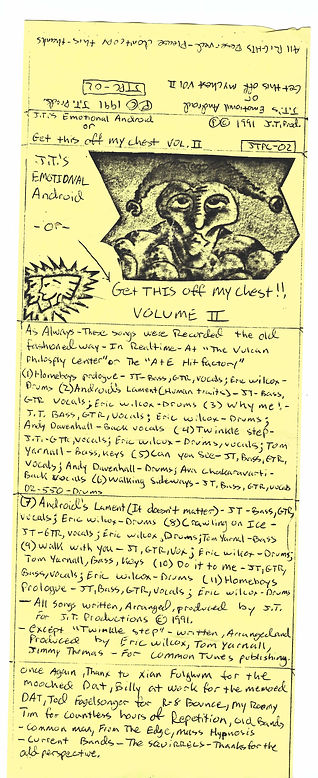 All Rights Reserved - Please dont copy this - thanks
Get this off my chest Vol II
or
J.T.'s Emotional Android
JTPC-02 Ⓟ© 1991 J.T. Prods
J.T.'s Emotional Android Ⓟ© 1991 J.T. Prod.
or
Get this off my chest VOL. II JTPC-02
J.T.'s
EMOTIONAL
Android
- OR -
Get THIS off My Chest!!,
VOLUME II
As Always - These songs were Recorded the old
fashioned way - In Realtime - At "The Vulcan
Philosphy Center" or The "A+E Hit factory"
(1) Homeboys prologue - JT - Bass, GTR, vocals; Eric wilcox -
Drums (2) Android's Lament (Human traits) - JT - Bass,
GTR Vocals; Eric wilcox - Drums (3) Why me! -
J.T. Bass, GTR, Vocals; Eric wilcox - Drums;
Andy Davenhall - Back vocals (4) Twinkle step -
J.T. - GTR, Vocals; Eric wilcox - Drums, vocals; Tom
Yarnall - Bass, Keys (5) Can you see - JT, Bass, GTR,
Vocals; Andy Davenhall - Drums; Ava Chakaravarti -
Back Vocals (6) Walking Sideways - JT, Bass, GTR, vocals
DR-550 - Drums
(7) Android's Lament (It doesn't matter) - JT - Bass, GTR,
vocals; Eric wilcox - Drums (8) Crawling on Ice -
JT - GTR, vocals; Eric wilcox, Drums; Tom Yarnal - Bass
(9) walk with you - JT, GTR, Vox; Eric wilcox - Drums;
Tom Yarnall, Bass, Keys (10) Do it to me - JT, GTR,
Bass, vocals; Eric wilcox - Drums (11) Homeboys
Prologue - JT, Bass, GTR, vocals; Eric wilcox - Drums
- All songs written, Arranged, produced by J.T.
For J.T. Productions © 1991.
- Except "Twinkle step" - written, Arranged and
Produced by Eric wilcox, Tom Yarnall,
Jimmy Thomas - For Common Tunes publishing.
once Again, Thanx to Xian Fulghum for the
mooched Dat, Billy at work for the memoed
DAT, Tod Fogelsonger for R-8 Bounce, my Roomy
Tim for countless hours of Repetition, old Bands
- Common man, From The Edge, Mass Hypnosis
- Current Bands - The SQUIRRELS - Thanks for the
odd perspective.